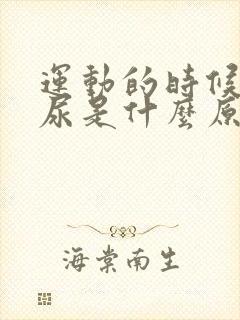 運動的時候
尿是什麼原
海棠南生